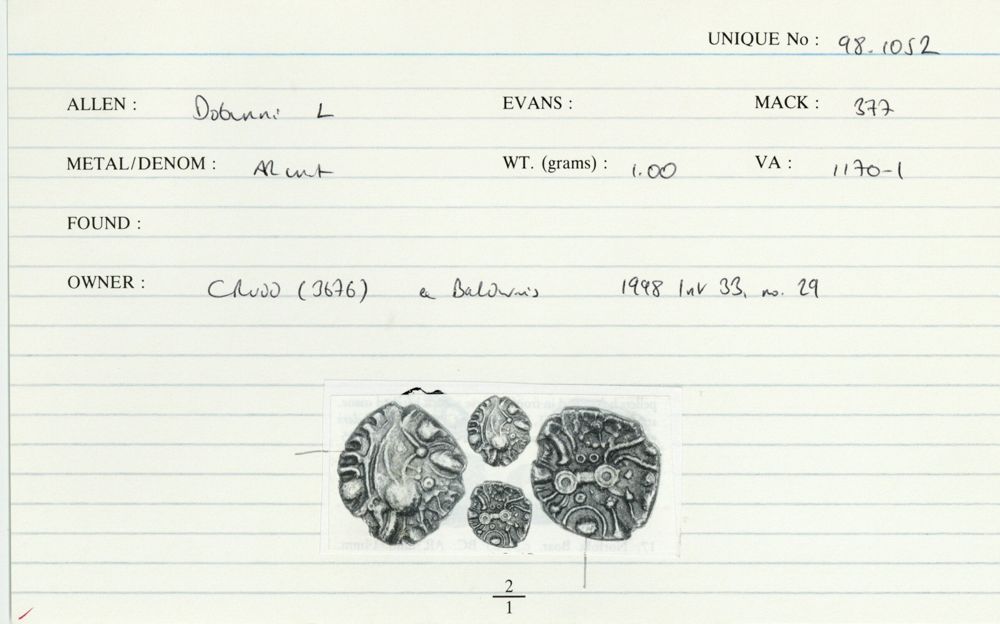 UNIQUE No : 98.1052
ALLEN : Dobunni L EVANS : MACK : 377
METAL/DENOM : AR unit WT. (grams) : 1.00 VA : 1170-1
FOUND :
OWNER : CRUDD (3676) ex Baldwins 1998 Inv 33, no. 29
2
1